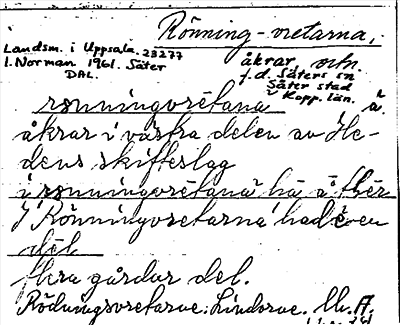 Rönning-vretarna,
Landsm. i Uppsala 23277
I. Norman 1961. Säter
DAL.
åkrar, och.
f.d. Säters sn
Säter stad
Kopp. län.
rønningvrétana ä.
åkrar i västra delen av He-
dens skifteslag
i rønningvrétana ha
I Rönningvretarna hade även
del
flera gårdar del.
Rödningsvretarne: Lindorne.